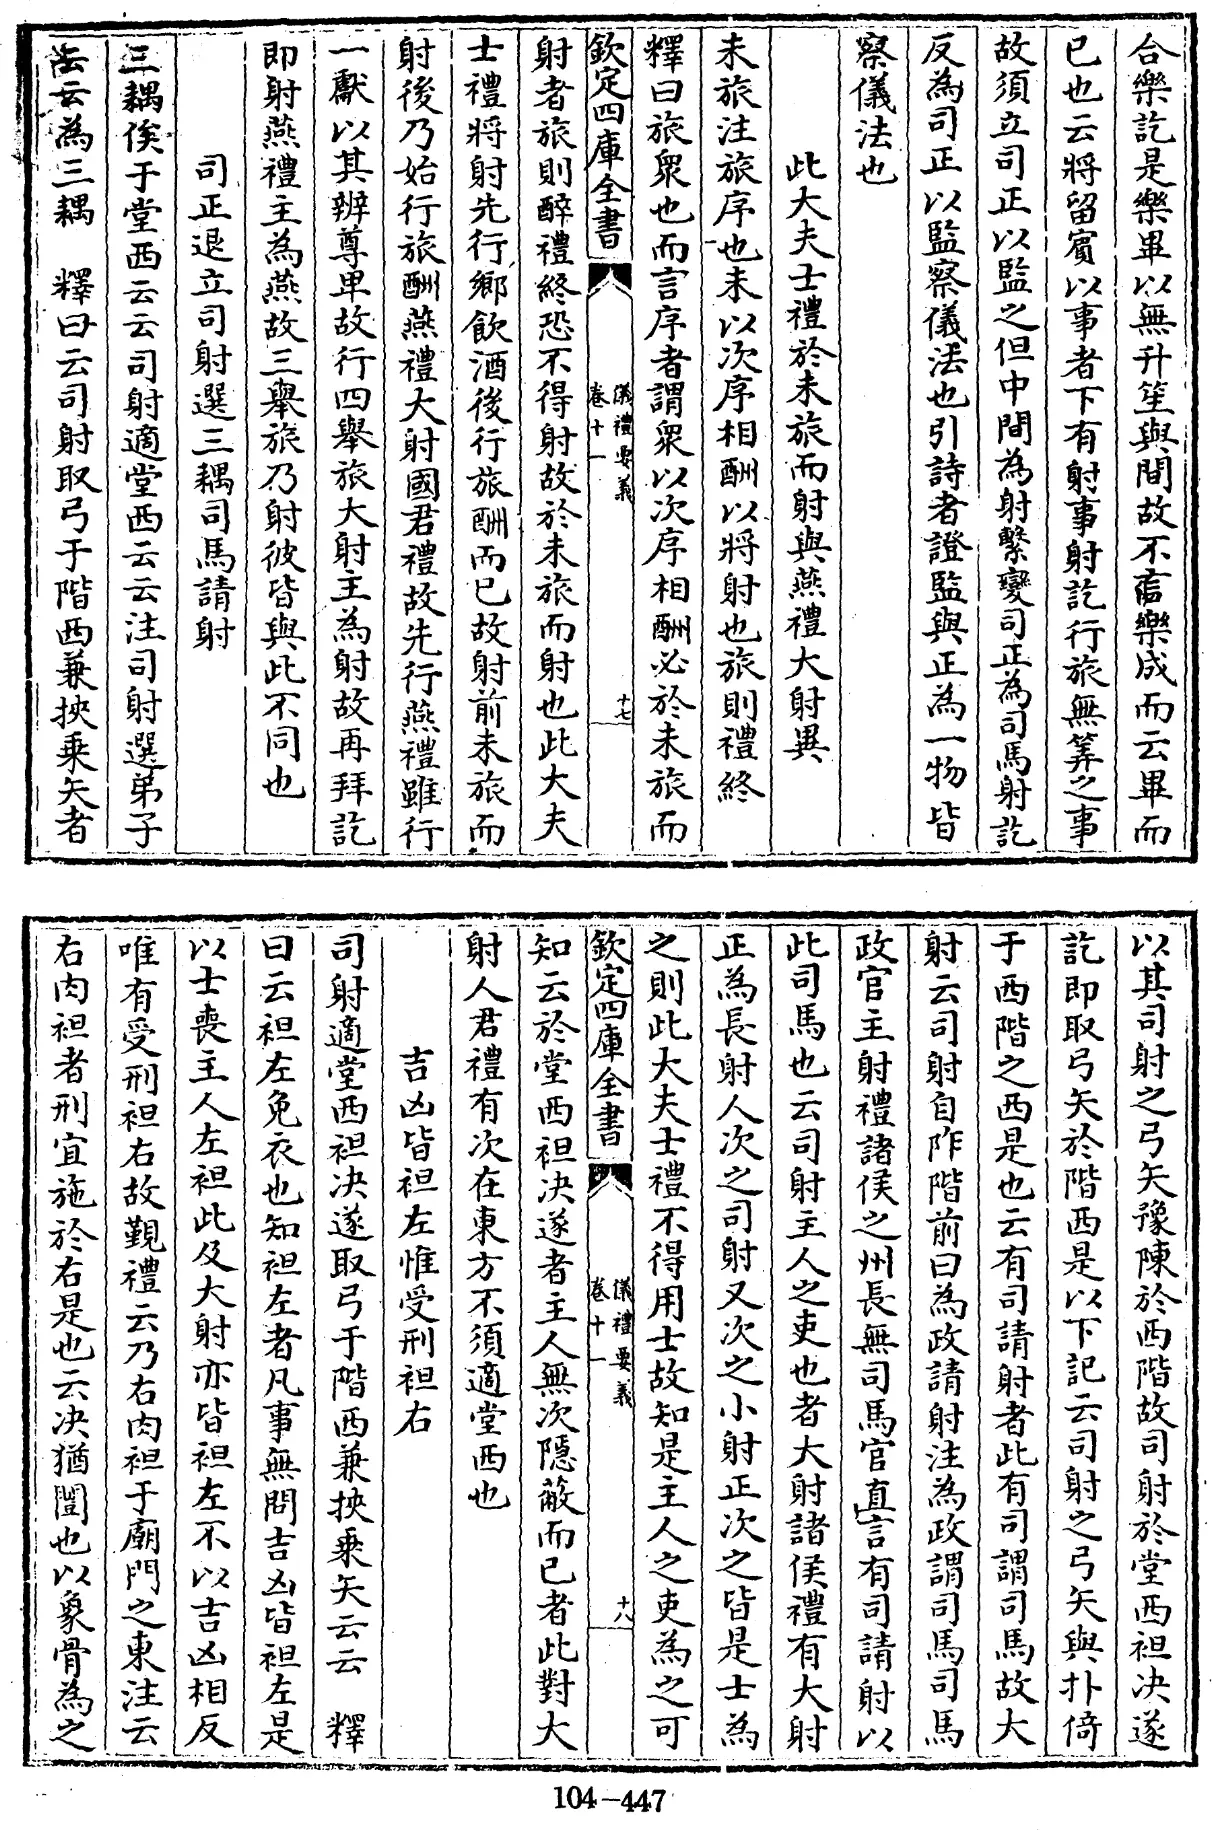 合樂訖是樂畢以無升笙與間故不言樂成而云畢而
已也云將留賓以事者下有射事射訖行旅無筭之事
故須立司正以監之但中間為射繫變司正為司馬射訖
反為司正以監察儀法也引詩者證監與正為一物皆
察儀法也
此大夫士禮於未旅而射與燕禮大射異
未旅注旅序也未以次序相酬以將射也旅則禮終
釋曰旅衆也而言序者謂衆以次序相酬必於未旅而
欽定四庫全書
儀禮要義
卷十一
十七
射者旅則醉禮終恐不得射故於未旅而射也此大夫
士禮將射先行鄉飲酒後行旅酬而已故射前未旅而
射後乃始行旅酬燕禮大射國君禮故先行燕禮雖行
一獻以其辨尊卑故行四舉旅大射主為射故再拜訖
即射燕禮主為燕故三舉旅乃射彼皆與此不同也
司正退立司射選三耦司馬請射
三耦俟于堂西云云司射適堂西云云注司射選弟子
云云為三耦 釋曰云司射取弓于階西兼挾乘矢者
以其司射之弓矢豫陳於西階故司射於堂西袒决遂
訖即取弓矢於階西是以下記云司射之弓矢與扑倚
于西階之西是也云有司請射者此有司謂司馬故大
射云司射自阼階前曰為政請射注為政謂司馬司馬
政官主射禮諸侯之州長無司馬官直言有司請射以
此司馬也云司射主人之吏也者大射諸侯禮有大射
正為長射人次之司射又次之小射正次之皆是士為
之則此大夫士禮不得用士故知是主人之吏為之可
欽定四庫全書
儀禮要義
卷十一
十八
知云於堂西袒决遂者主人無次隱蔽而已者此對大
射人君禮有次在東方不須適堂西也
吉凶皆袒左惟受刑袒右
司射適堂西袒决遂取弓于階西兼挾乘矢云云 釋
曰云袒左免衣也知袒左者凡事無問吉凶皆袒左是
以士喪主人左袒此及大射亦皆袒左不以吉凶相反
唯有受刑袒右故覲禮云乃右肉袒于廟門之東注云
右肉袒者刑宜施於右是也云决猶闓也以象骨為之
104-447